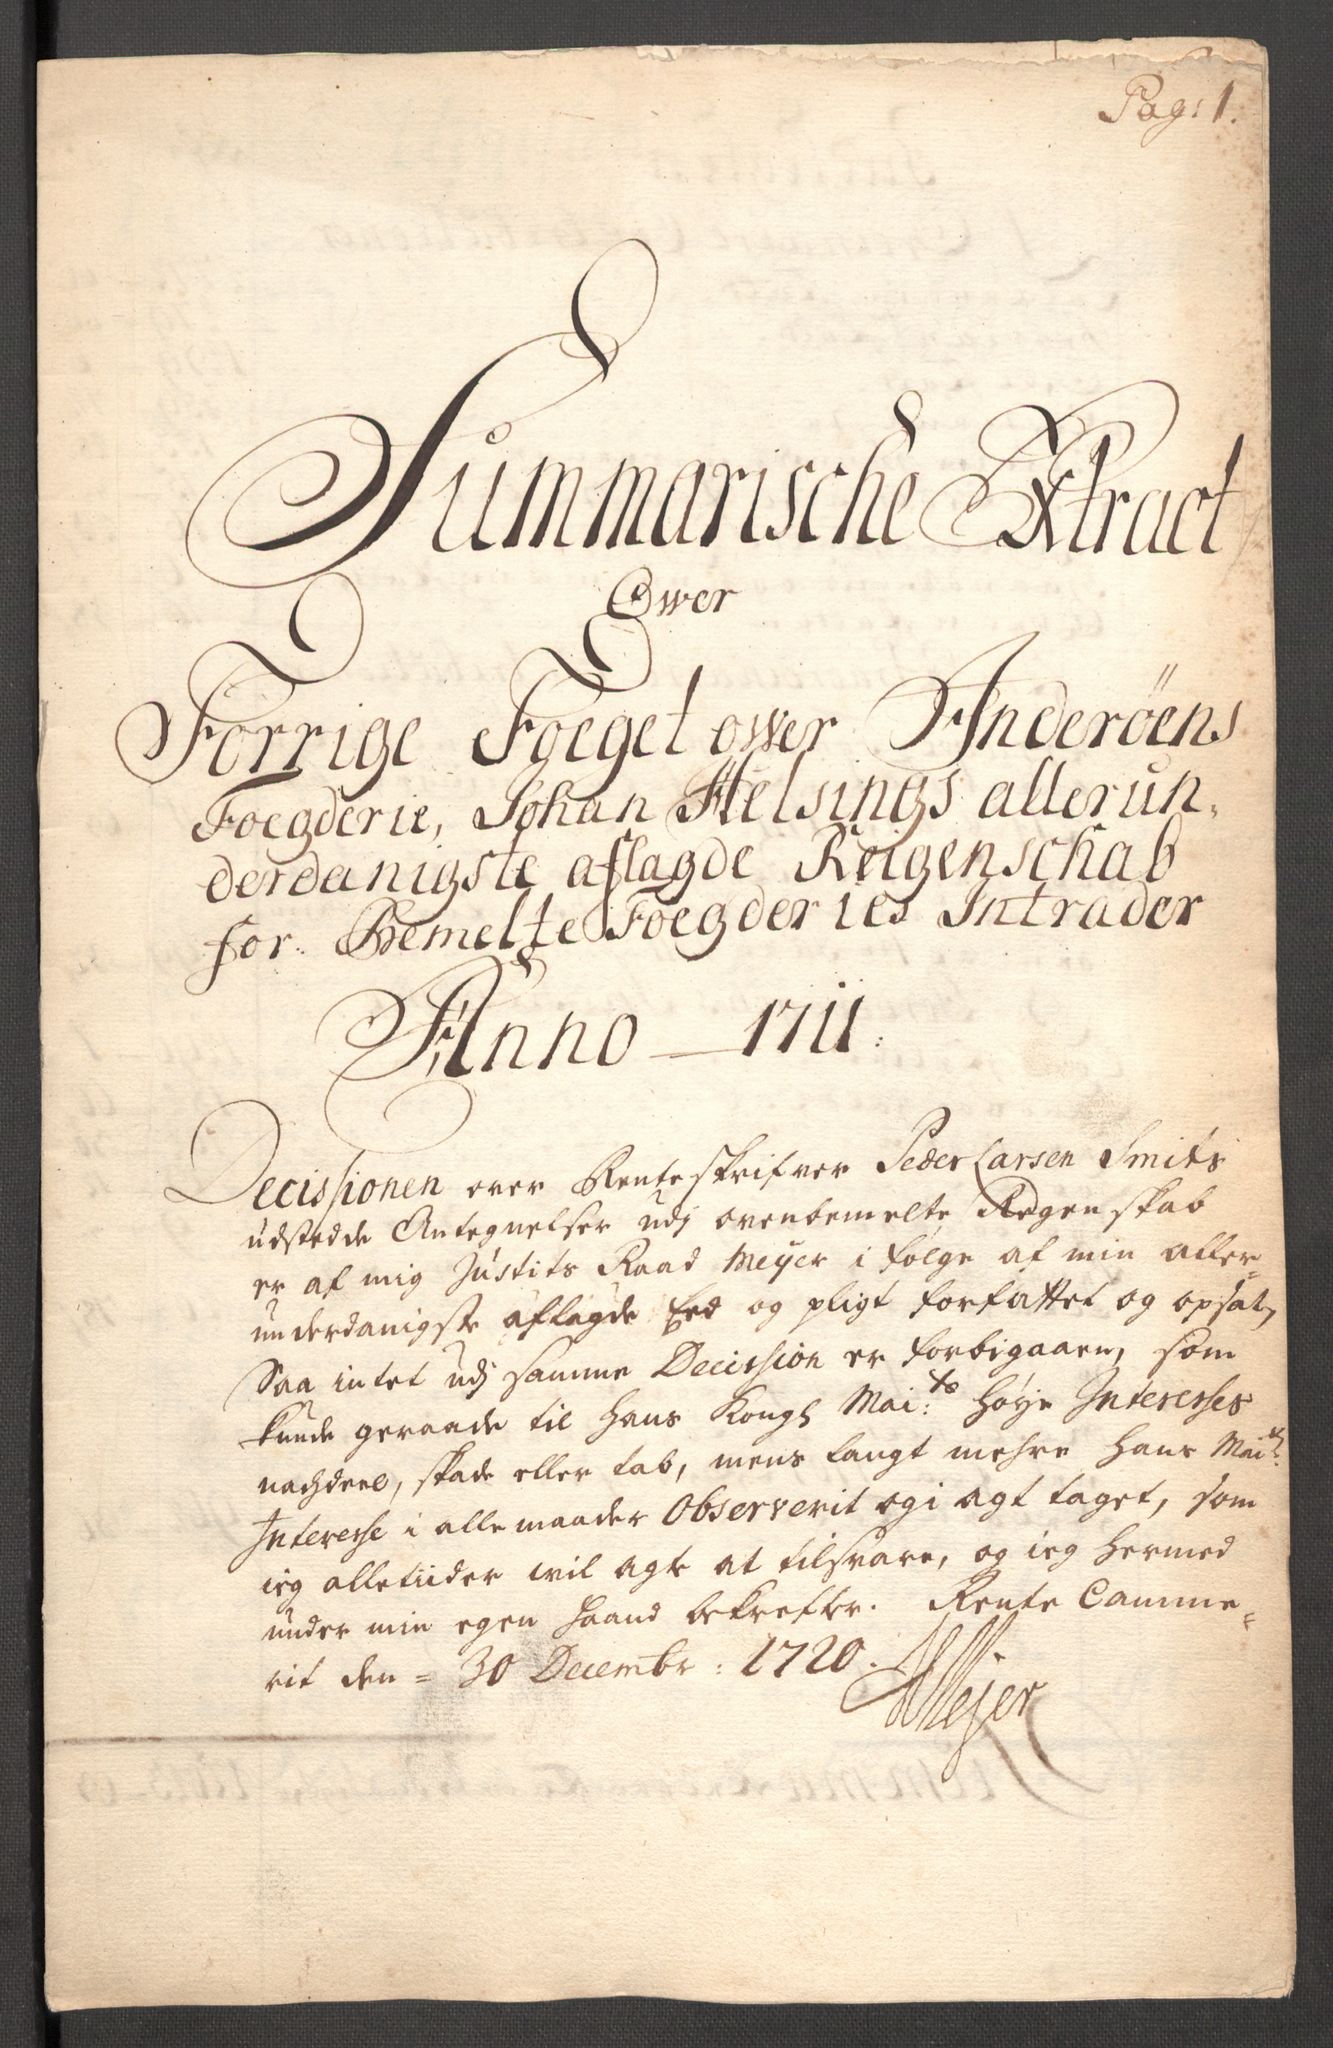 Pag: 1.
Summarische Extract
Ower
Forrige Foeget ower Inderöens
Foegderie, Johan Helsings allerun,
derdanigste aflagde Reigenschab
for. Bemelte Foegderies Intrader
Anno – 1711:
Decissionen over Renteskrifver Peder Larsen Smits
udstedde Antegnelser udj ovenbemelte Regenskab
er af mig Justits Raad Meyer i følge af min aller-
underdanigste aflagde Eed og pligt forfattet og opsat,
Saa intet udj samme Decission er forbigaaen, som
kunde geraade til Hans Kongl Mai:ts Høye Interesses
nachdeel, skade eller tab, mens langt mehre Hans Mai:ts
Interesse i alle maader Observerit og i agt taget, som
ieg alletiider vil agte at tilsvare, og ieg hermed
under min egen Haand bekrefter. Rente Camme=
rit den = 30 Decembr: 1720.
Mejer